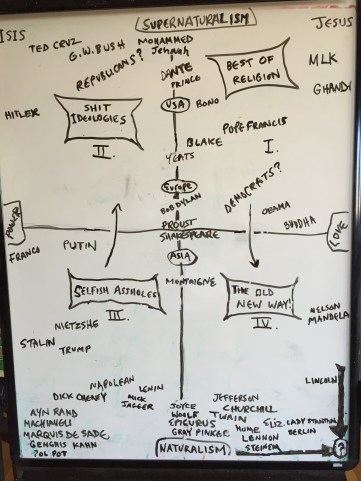 SUPERNATURALISM
ISIS
JESUS
TED CRUZ
G.W. BUSH
MOHAMMED
Jehovah
REPUBLICANS?
DANTE
PRINCE
BEST OF
RELIGION
MLK
GHANDI
HITLER
SHIT
IDEOLOGIES
USA
BONO
II.
BLAKE
POPE FRANCIS
I.
YEATS
Europe
BOB DYLAN
DEMOCRATS?
OBAMA
BUDDHA
POWER
PROUST
SHAKESPEARE
LOVE
FRANCO
PUTIN
ASIA
SELFISH ASSHOLES
MONTAIGNE
THE OLD
NEW WAY!
III.
IV.
NIETZSHE
NELSON
MANDELA
STALIN
TRUMP
LINCOLN
NAPOLEAN
LENIN
DICK CHENEY
MICK
JAGGER
JEFFERSON
CHURCHILL
AYN RAND
MACHIAVELI
MARQUIS DE SADE
GENGHIS KAHN
POL POT
JOYCE
WOOLF
EPIGURUS
GRAY PINKER
TWAIN
HUME
LENNON
STEINEM
ELIZ. CADY STANTON
BERLIN
NATURALISM
?